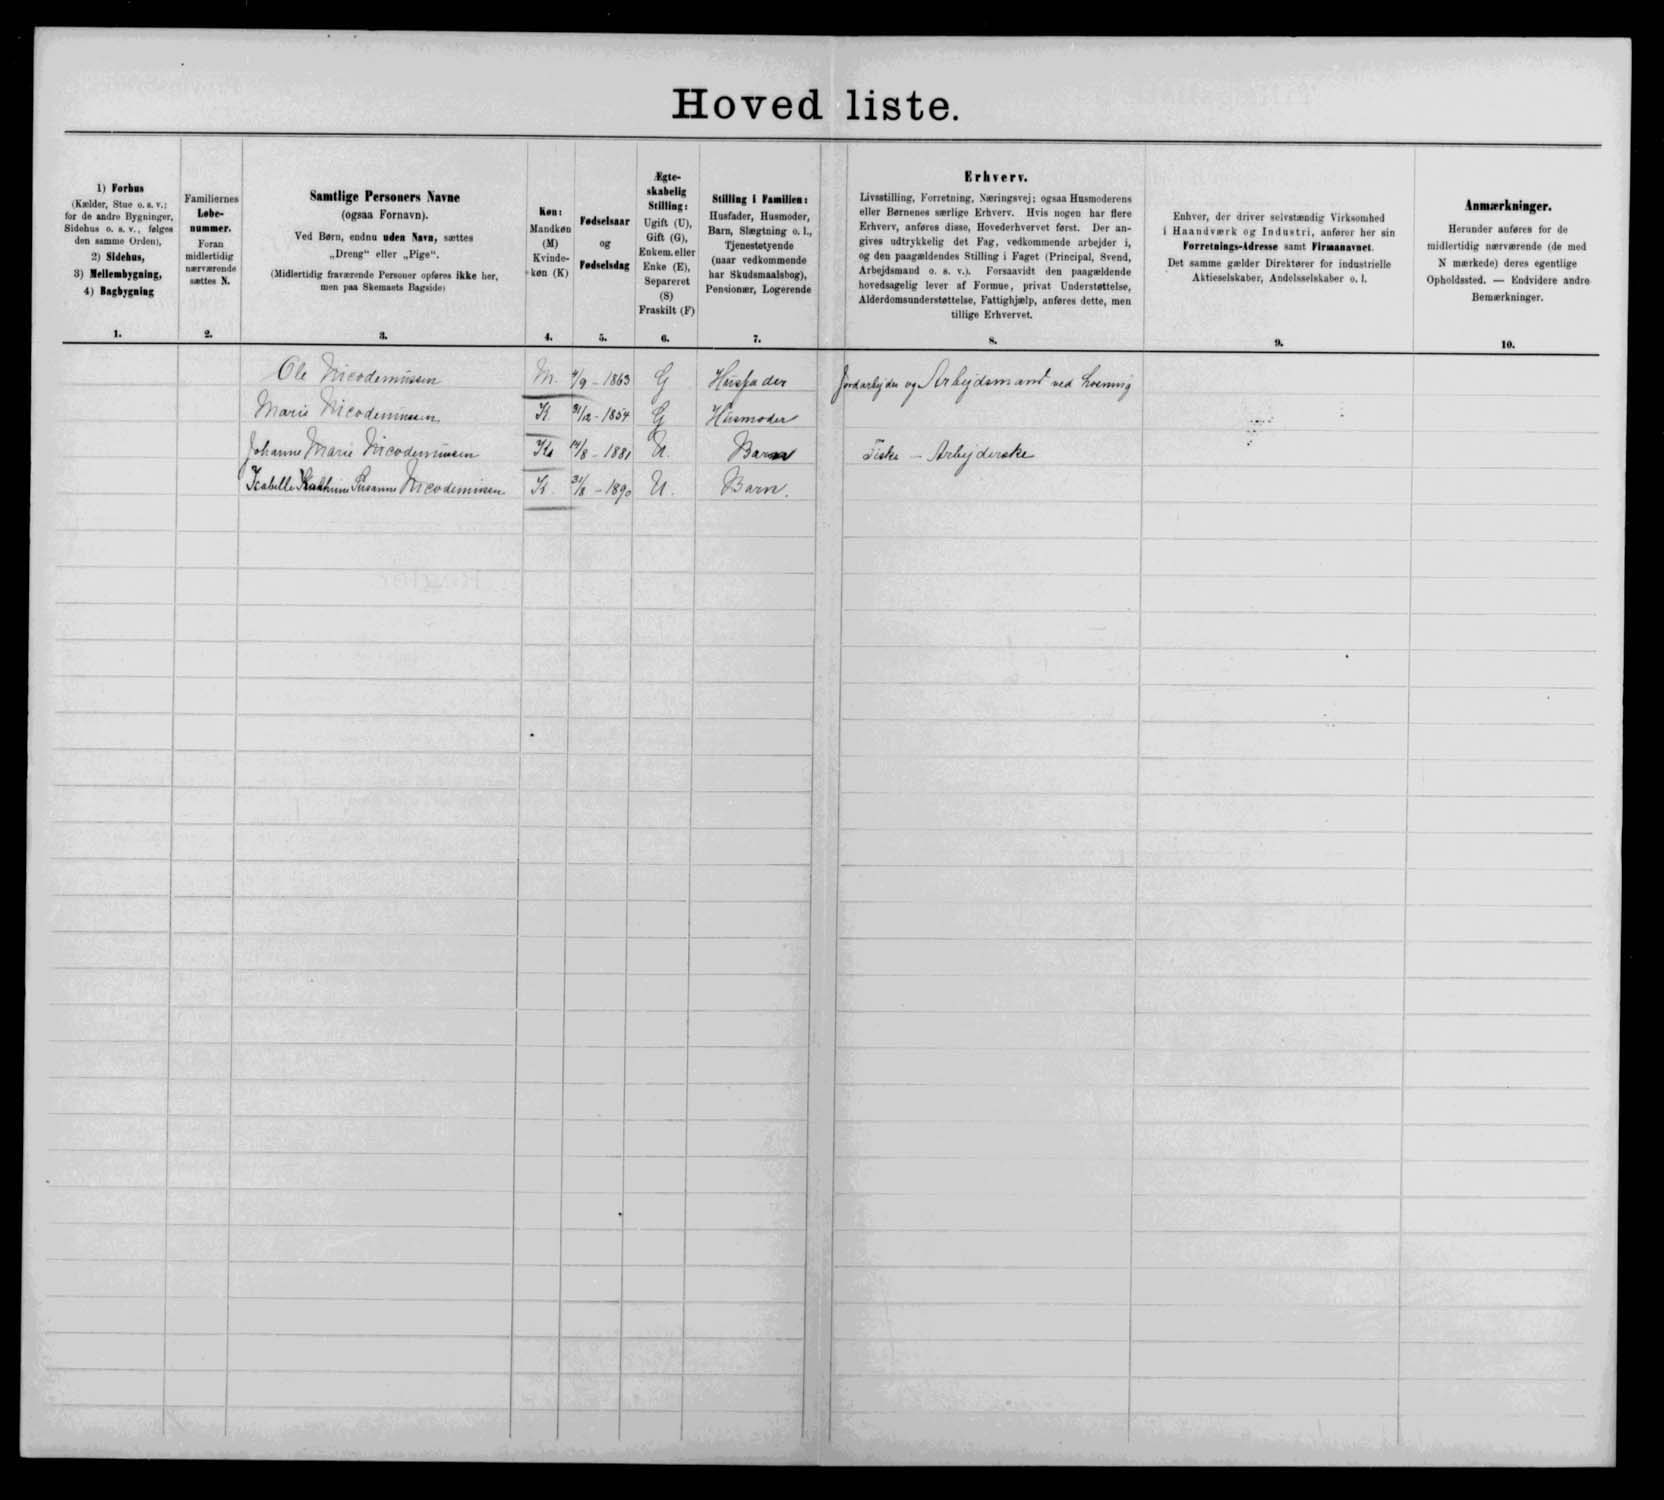 Hovedliste.
1) Forhus
(Kælder, Stue o. s. v.;
for de andre Bygninger,
Sidehus o. s. v., følges
den samme Orden),
2) Sidehus,
3) Mellembygning,
4) Bagbygning
1.
Familiernes
Løbe-
nummer.
Foran
midlertidig
nærværende
sættes N.
2.
Samtlige Personers Navne
(ogsaa Fornavn).
Ved Børn, endnu uden Navn, sættes
„Dreng“ eller „Pige“.
(Midlertidig fraværende Personer opføres ikke her,
men paa Skemaets Bagside)
3.
Køn:
Mandkøn
(M)
Kvinde-
køn (K)
4.
Fødselsaar
og
Fødselsdag
5.
Ægte-
skabelig
Stilling:
Ugift (U),
Gift (G),
Enkem. eller
Enke (E),
Separeret
(S)
Fraskilt (F)
6.
Stilling i Familien:
Husfader, Husmoder,
Barn, Slægtning o. l.,
Tjenestetyende
(naar vedkommende
har Skudsmaalsbog),
Pensionær, Logerende
7.
Erhverv.
Livsstilling, Forretning, Næringsvej; ogsaa Husmoderens
eller Børnenes særlige Erhverv. Hvis nogen har flere
Erhverv, anføres disse, Hovederhvervet først. Der an-
gives udtrykkelig det Fag, vedkommende arbejder i,
og den paagældendes Stilling i Faget (Principal, Svend,
Arbejdsmand o. s. v.). Forsaavidt den paagældende
hovedsagelig lever af Formue, privat Understøttelse,
Alderdomsunderstøttelse, Fattighjælp, anføres dette, men
tillige Erhvervet.
8.
Enhver, der driver selvstændig Virksomhed
i Haandværk og Industri, anfører her sin
Forretnings-Adresse samt Firmanavnet.
Det samme gælder Direktører for industrielle
Aktieselskaber, Andelsselskaber o. l.
9.
Anmærkninger.
Herunder anføres for de
midlertidig nærværende (de med
N mærkede) deres egentlige
Opholdssted. — Endvidere andre
Bemærkninger.
10.
Ole Nicodemussen M. /9 - 1863 G Husfader Jordarbejder og Arbejdsmand ved
Marie Nicodemussen K 31/12 - 1854 G Husmoder
Johanne Marie Nicodemussen K /8 - 1881 U. Barn Fiske - Arbejderske
Isabelle Kathrine Susanne Nicodemussen K. 31/8 - 1890 U. Barn.